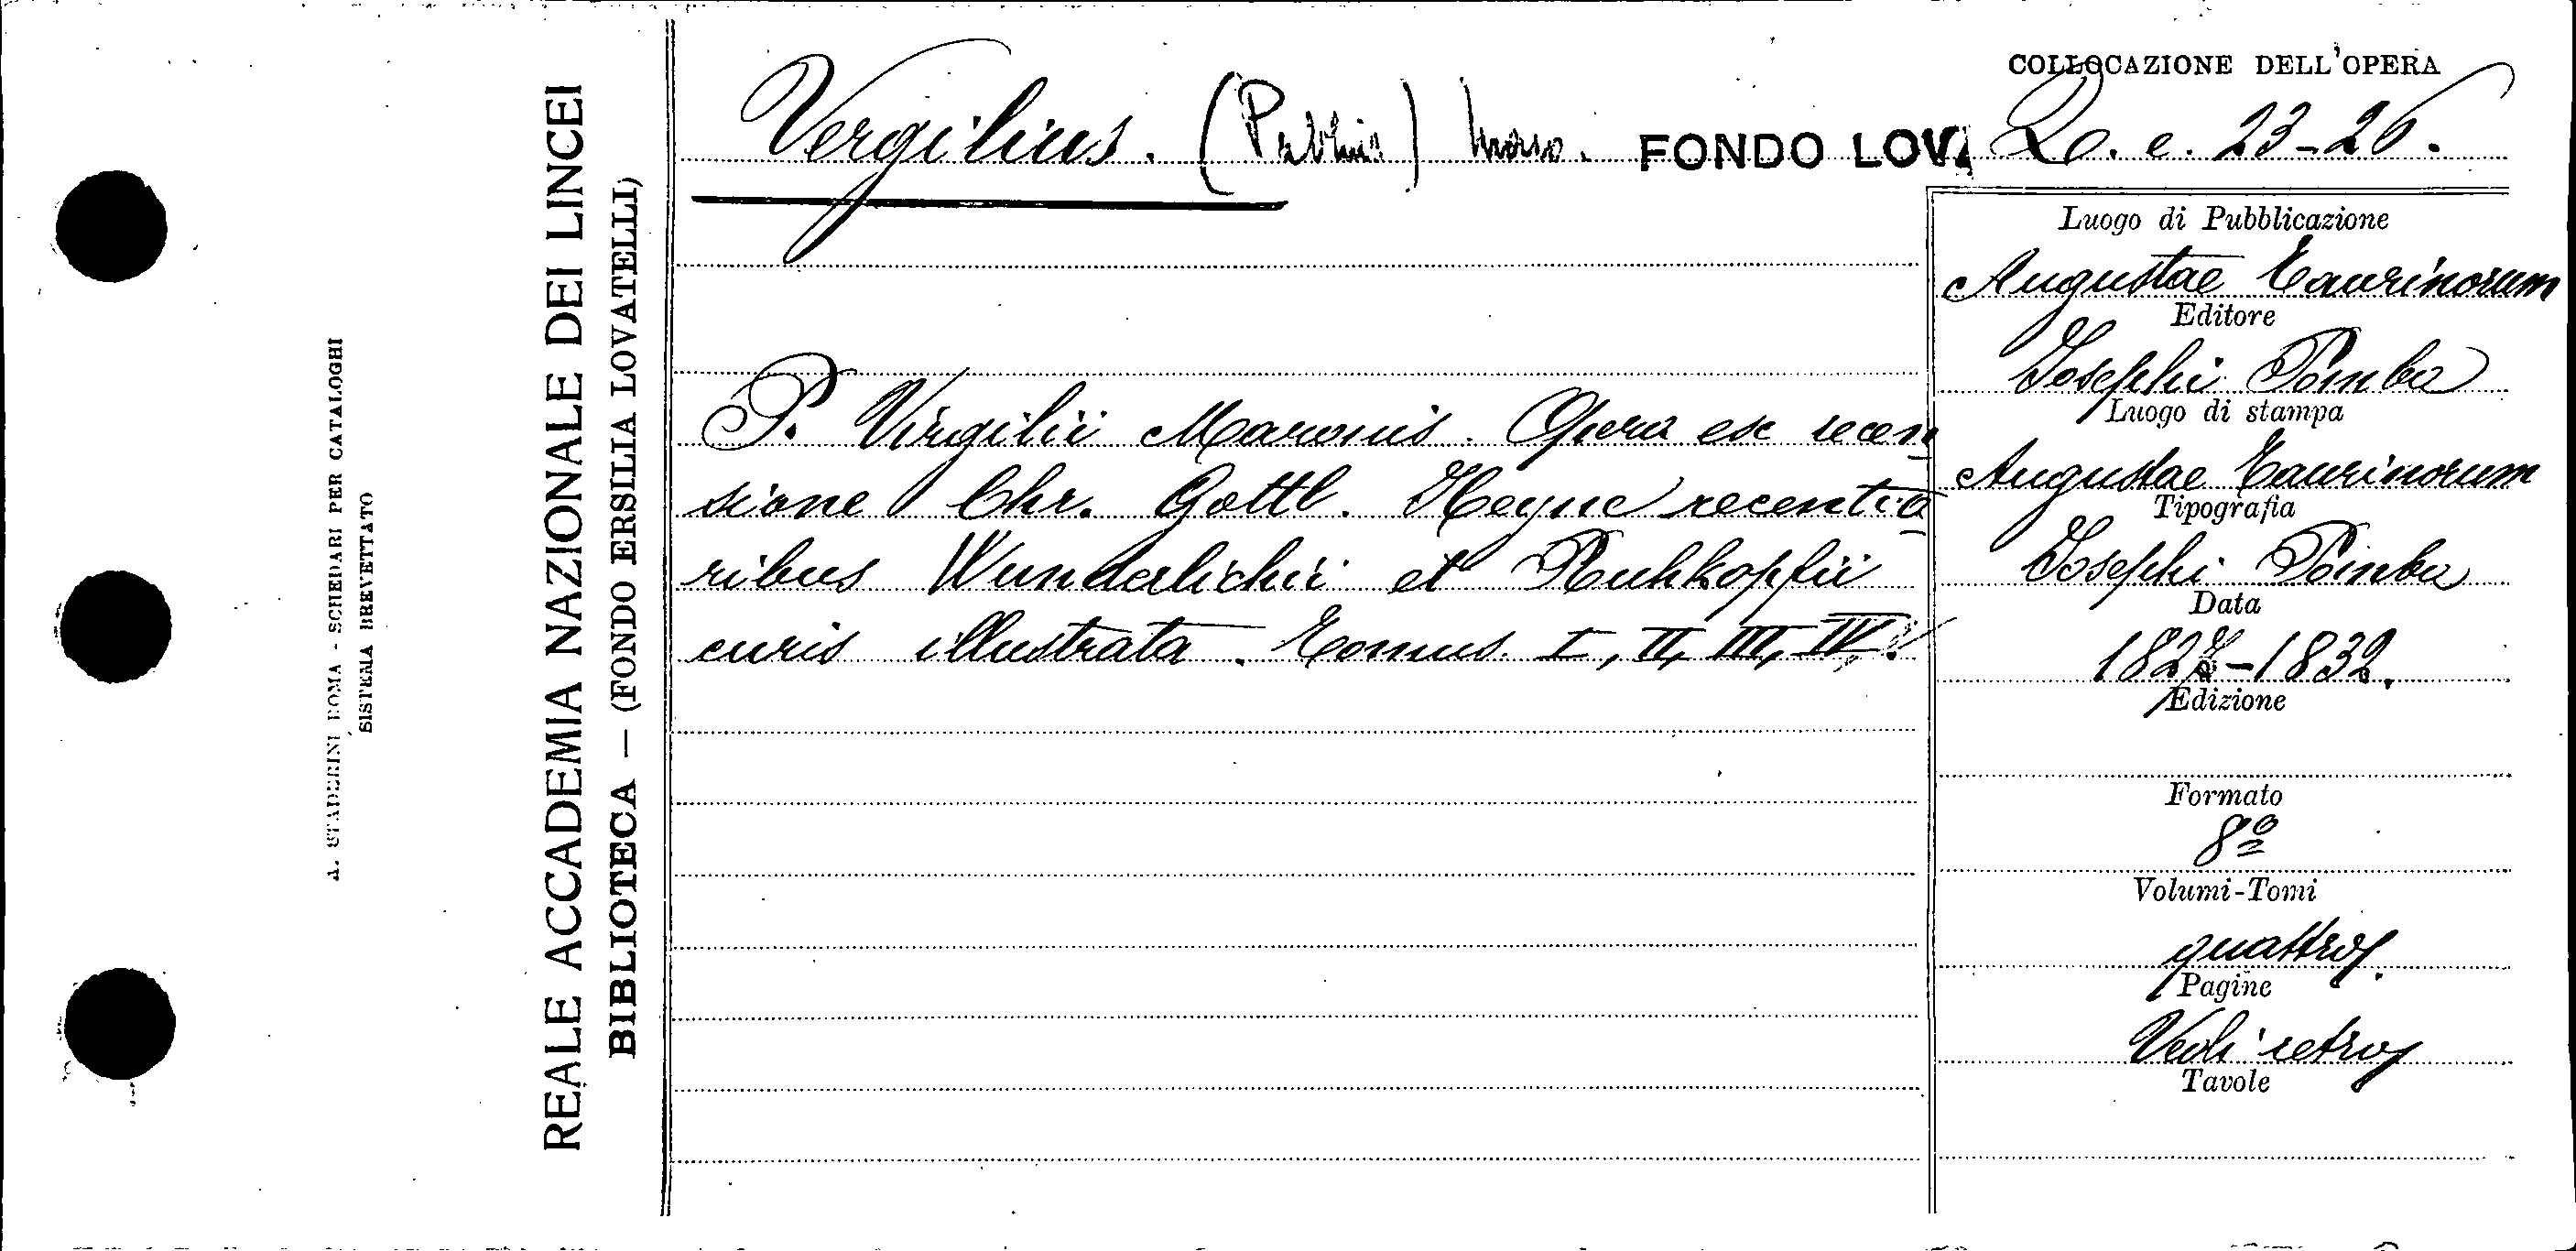 COLLOCAZIONE DELL'OPERA
Vergilius. (Publius) Maro. FONDO LOVA 20. e. 23-26.
Luogo di Pubblicazione
Augustae Taurinorum
Editore
Josephi Pomba
Luogo di stampa
Augustae Taurinorum
Tipografia
Josephi Pomba
Data
1827-1832.
Edizione
Formato
8º
Volumi-Tomi
quattro.
Pagine
Vedi retro
Tavole
P. Virgilii Maronis. Opera ex recen
sione Chr. Gottl. Heyne recentio
ribus Wunderlichii et Ruhkopfii
curis illustrata. Tomus I, II, III, IV.
REALE ACCADEMIA NAZIONALE DEI LINCEI
BIBLIOTECA — (FONDO ERSILIA LOVATELLI)
A. STADERINI ROMA - SCHEDARI PER CATALOGHI
SISTEMA BREVETTATO